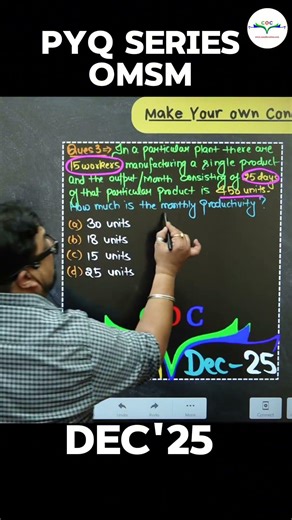 PYQ SERIES
OMSM
COC
Make Your own Con
Ques 3⇒ In a particular plant there are
15 workers manufacturing a single product
and the output/month consisting of 25 days
of that particular product is 450 units.
How much is the monthly productivity?
(a) 30 units
(b) 18 units
(c) 15 units
(d) 25 units
COC
Dec-25
Undo
Redo
Connect
DEC'25